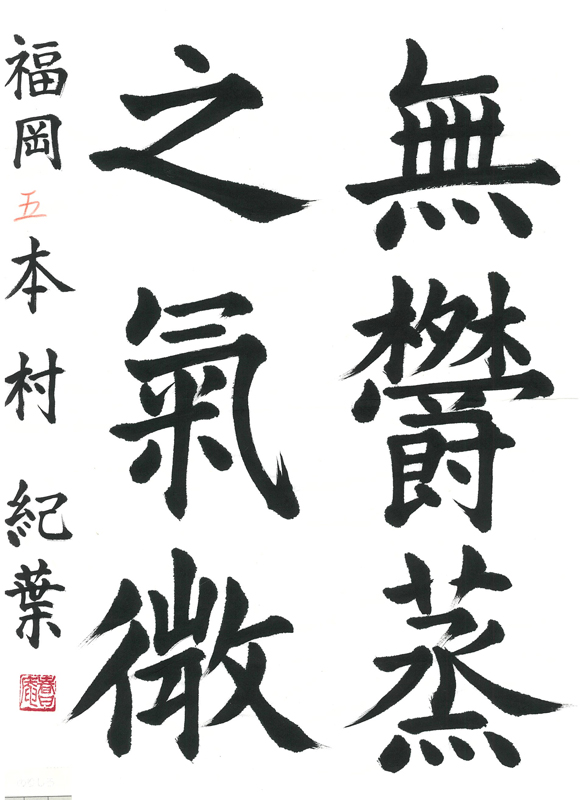 無欝蒸
之氣微
福岡 五 本村 紀葉